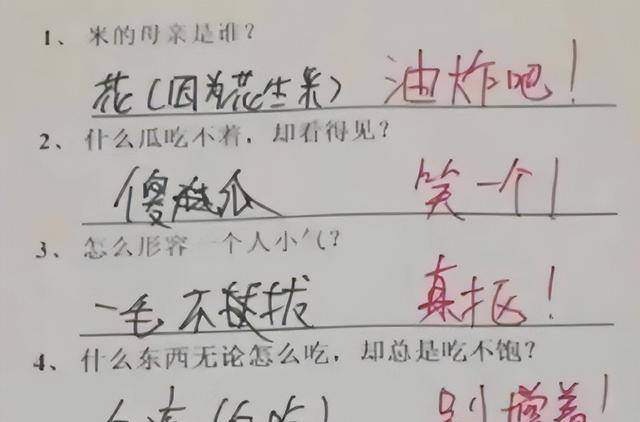 1、米的母亲是谁?
花(因为花生米) 油炸吧!
2、什么瓜吃不着,却看得见?
傻瓜 笑一个!
3、怎么形容一个人小气?
一毛不拔 真抠!
4、什么东西无论怎么吃,却总是吃不饱?
别撑着!